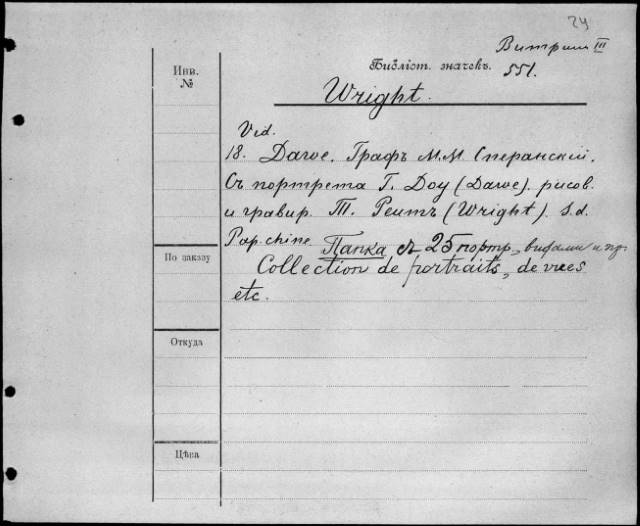 24
Витрина III
Инв. №
Библіот. значекъ. 551.
Wright.
Vid.
18. Dawe. Графъ М.М. Сперанскій.
Съ портрета Г. Доу (Dawe). рисов.
и гравир. Т. Рейтъ (Wright). S.d.
Pap. chine. Папка съ 25 портр., видами и пр.
По заказу
Collection de portraits, de vues
etc.
Откуда
Цѣна